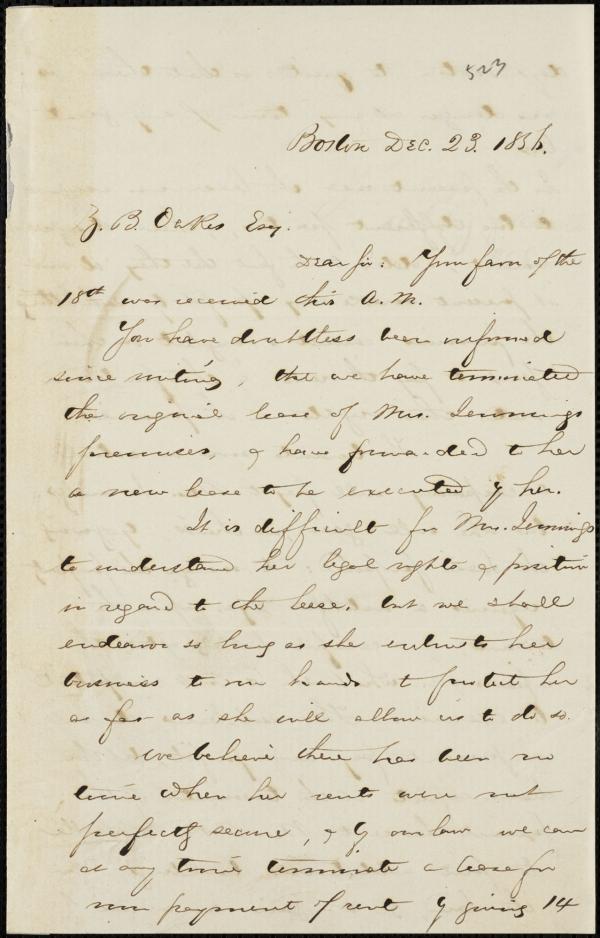 523
Boston Dec. 23. 1856.
Z. B. Oakes Esq.
Dear Sir. Your favor of the
18th was received this A.M.
You have doubtless been informed
since writing, that we have terminated
the original lease of Mrs. Jennings
premises, & have forwarded to her
a new lease to be executed by her.
It is difficult for Mrs. Jennings
to understand her legal rights & position
in regard to the lease, but we shall
endeavor so long as she entrusts her
business to our hands to protect her
as far as she will allow us to do so.
We believe there has been no
time when her rents were not
perfectly secure, & by our law we can
at any time terminate a lease for
non payment of rent by giving 14